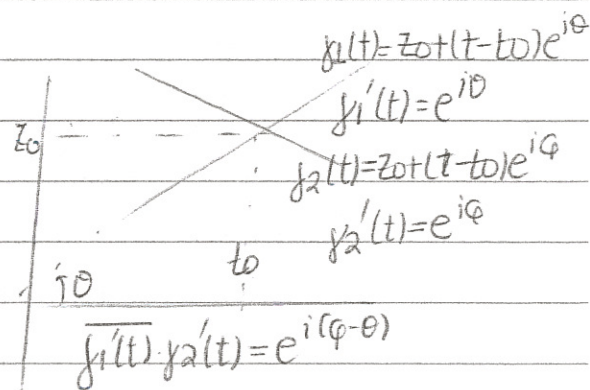 γ1(t)=z0+(t-t0)e^{iθ}
γ1'(t)=e^{iθ}
z0
γ2(t)=z0+(t-t0)e^{iφ}
γ2'(t)=e^{iφ}
t0
iθ
\overline{γ1'(t)}·γ2'(t)=e^{i(φ-θ)}